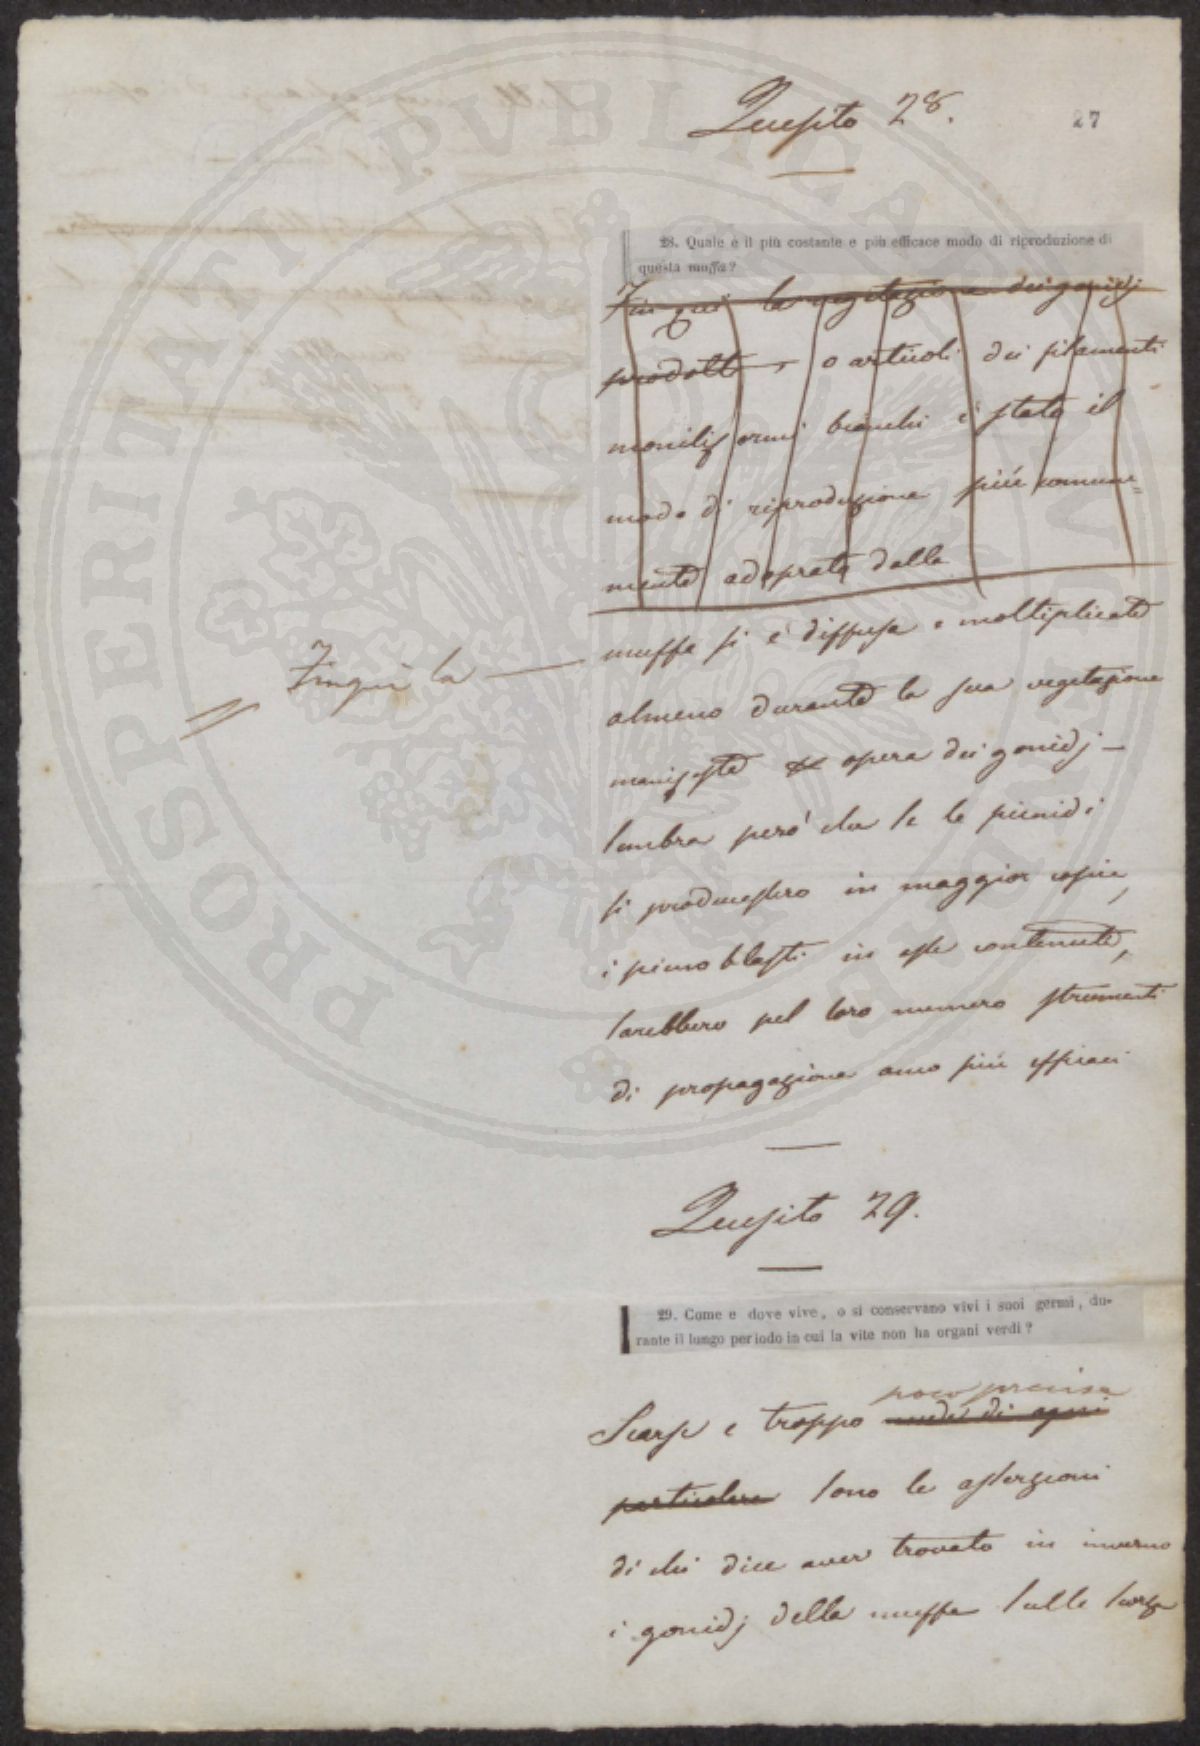 Quesito 28.
27
28. Quale è il più costante e più efficace modo di riproduzione di
questa muffa?
Fin qui la vegetazione dei gonidj
prodotti, o articoli dei filamenti
moniliformi bianchi è stato il
modo di riproduzione più comune=
mente adoprato dalla
Finquì la
muffa si è diffusa e moltiplicata
almeno durante la sua vegetazione
manifesta opera dei gonidj —
Sembra però che se le picnidi
si producessero in maggior copia,
i pimoblasti in esse contenuti,
sarebbero pel loro numero strumenti
di propagazione anco più efficaci
Quesito 29.
29. Come e dove vive, o si conservano vivi i suoi germi, du-
rante il lungo periodo in cui la vite non ha organi verdi?
poco precise
Scarse e troppo nude di ogni
particolare sono le asserzioni
di chi dice aver trovato in inverno
i gonidj della muffa sulle scorze
PROSPERITATI PVBLICAE AVGENDAE